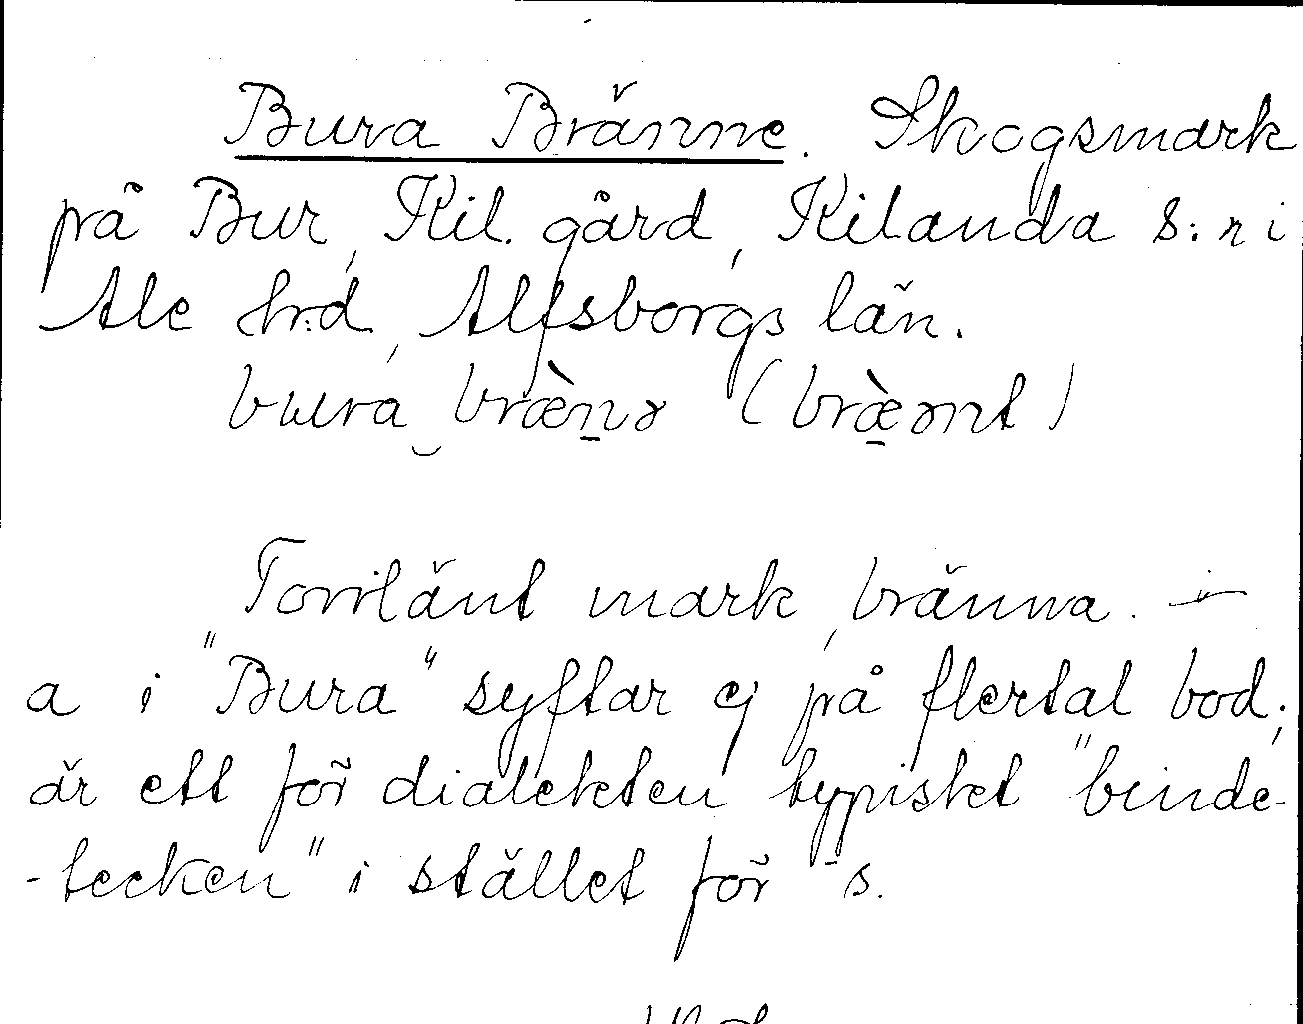 Bura Bränne. Skogsmark
på Bur, Kil. gård, Kilanda s:n i
Ale hrd, Alfsborgs län.
bura bræ̀nə (bræ̀ənt)
Torrlänt mark, bränna. –
a i "Bura" syftar ej på flertal bod;
är ett för dialekten typiskt "binde-
-tecken" i stället för -s.